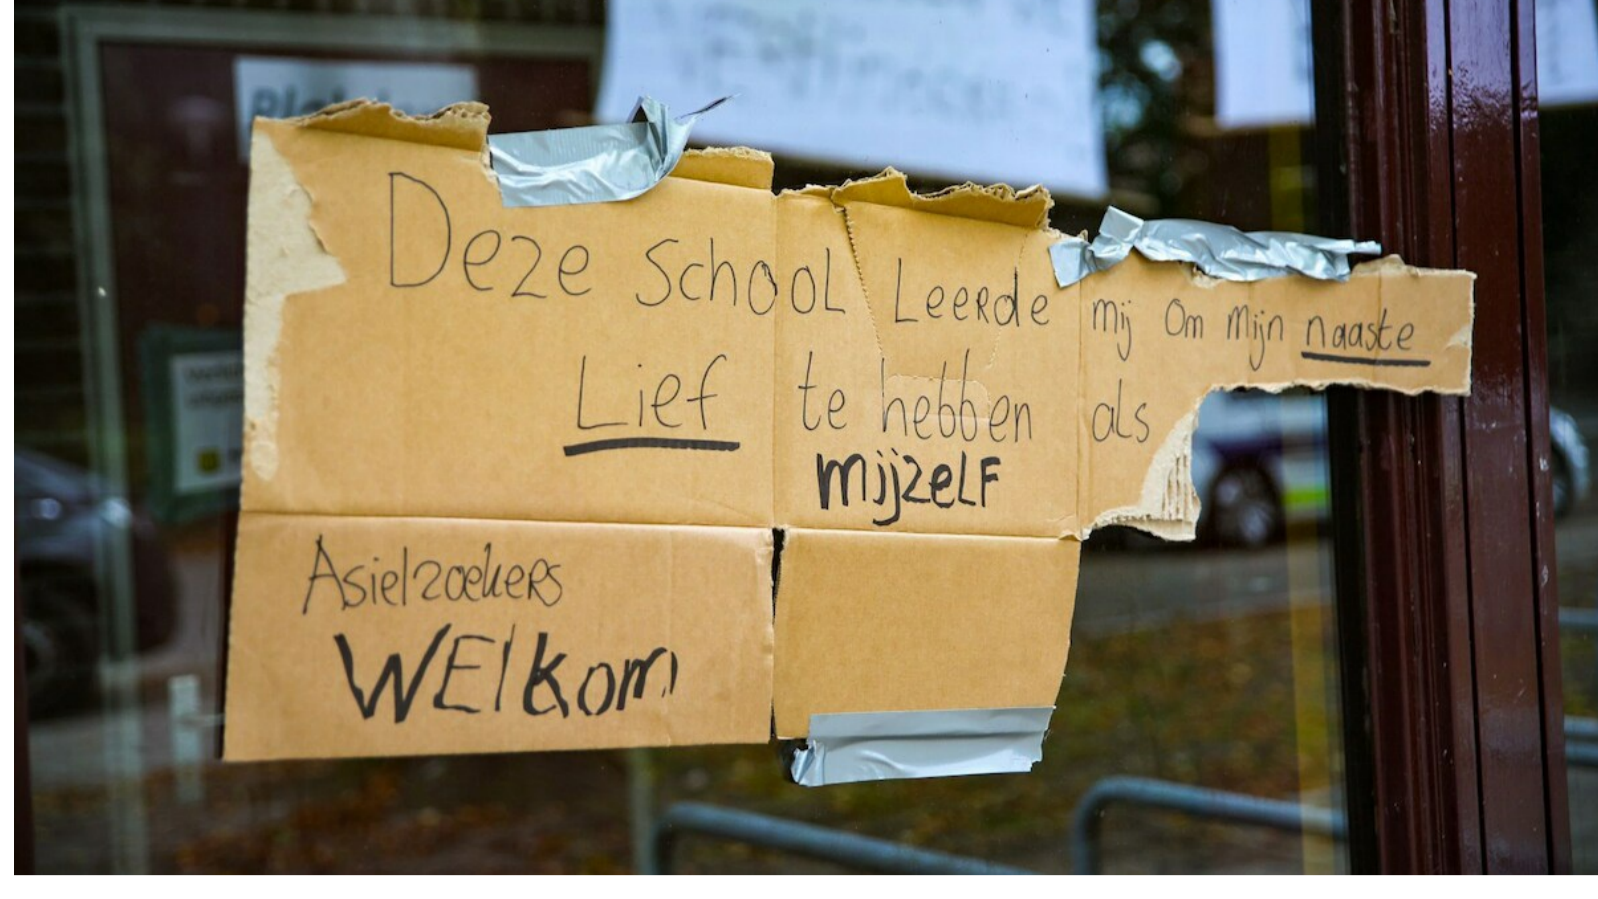 Deze School Leerde mij om mijn naaste
Lief te hebben als
mijzelf
Asielzoekers
WElkom